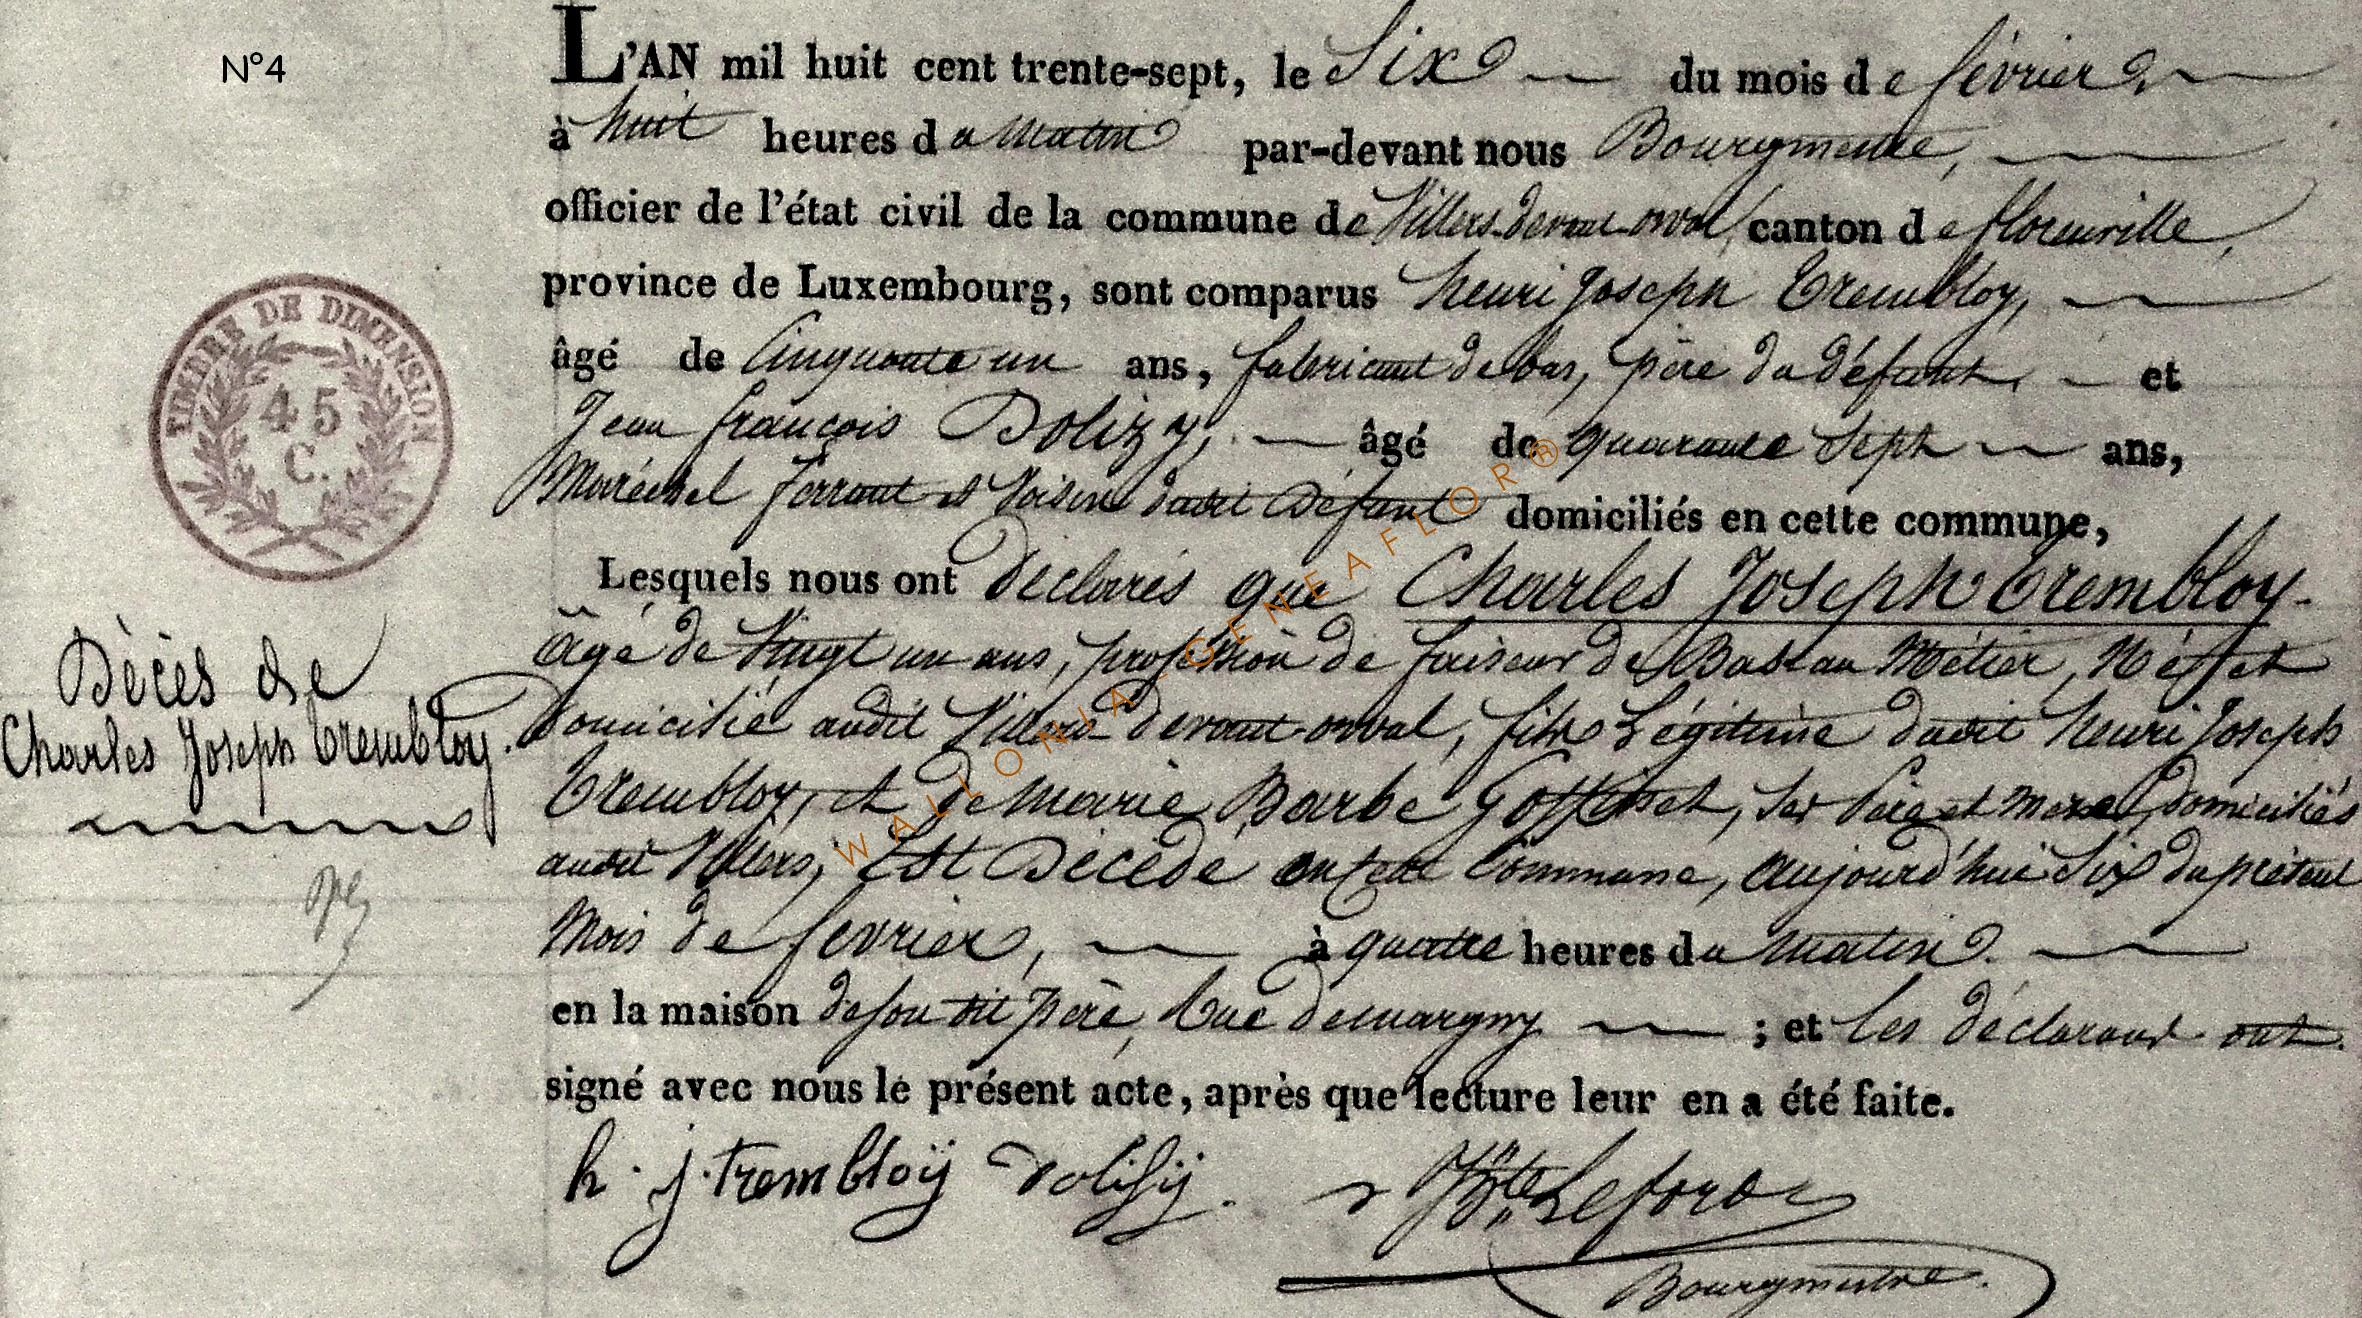 N°4
L'AN mil huit cent trente-sept, le Six du mois de février
à huit heures du matin par-devant nous Bourgmestre,
officier de l'état civil de la commune de Villers-devant-orval, canton de florenville,
province de Luxembourg, sont comparus henri Joseph Trembloy,
âgé de Cinquante un ans, fabricant de bas, père du défunt, et
Jean françois Dolizy, âgé de quarante Sept ans,
Maréchal ferrant et Voisin dudit Défunt domiciliés en cette commune,
Lesquels nous ont déclarés que Charles Joseph Trembloy
âgé de Vingt un ans, profession de faiseur de Bas au Métier, Né et
domicilié audit Villers-devant-orval, fils Légitime dudit henri Joseph
Trembloy, et de Marie Barbe Goffinet, ses Père et Mere, domiciliés
audit Villers, Est Décédé en cette Commune, aujourd'hui Six du présent
Mois de fevrier, à quatre heures du matin.
en la maison de son dit père, Rue Demargny ; et les déclarant ont
signé avec nous le présent acte, après que lecture leur en a été faite.
h. j. Trembloÿ Dolisÿ. Leford
Bourgmestre.
TIMBRE DE DIMENSION
45
C.
Décès de
Charles Joseph Trembloy.
WALLONIA-GENEAFLOR®